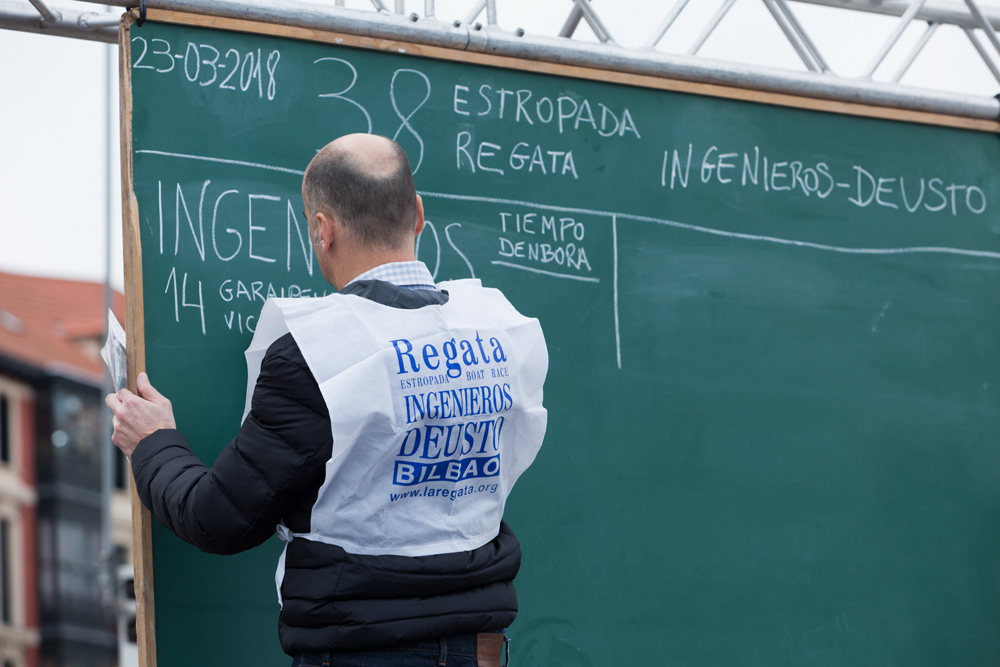 23-03-2018
38
ESTROPADA
REGATA
INGENIEROS-DEUSTO
TIEMPO
DENBORA
14
Regata
ESTROPADA BOAT RACE
INGENIEROS
DEUSTO
BILBAO
www.laregata.org